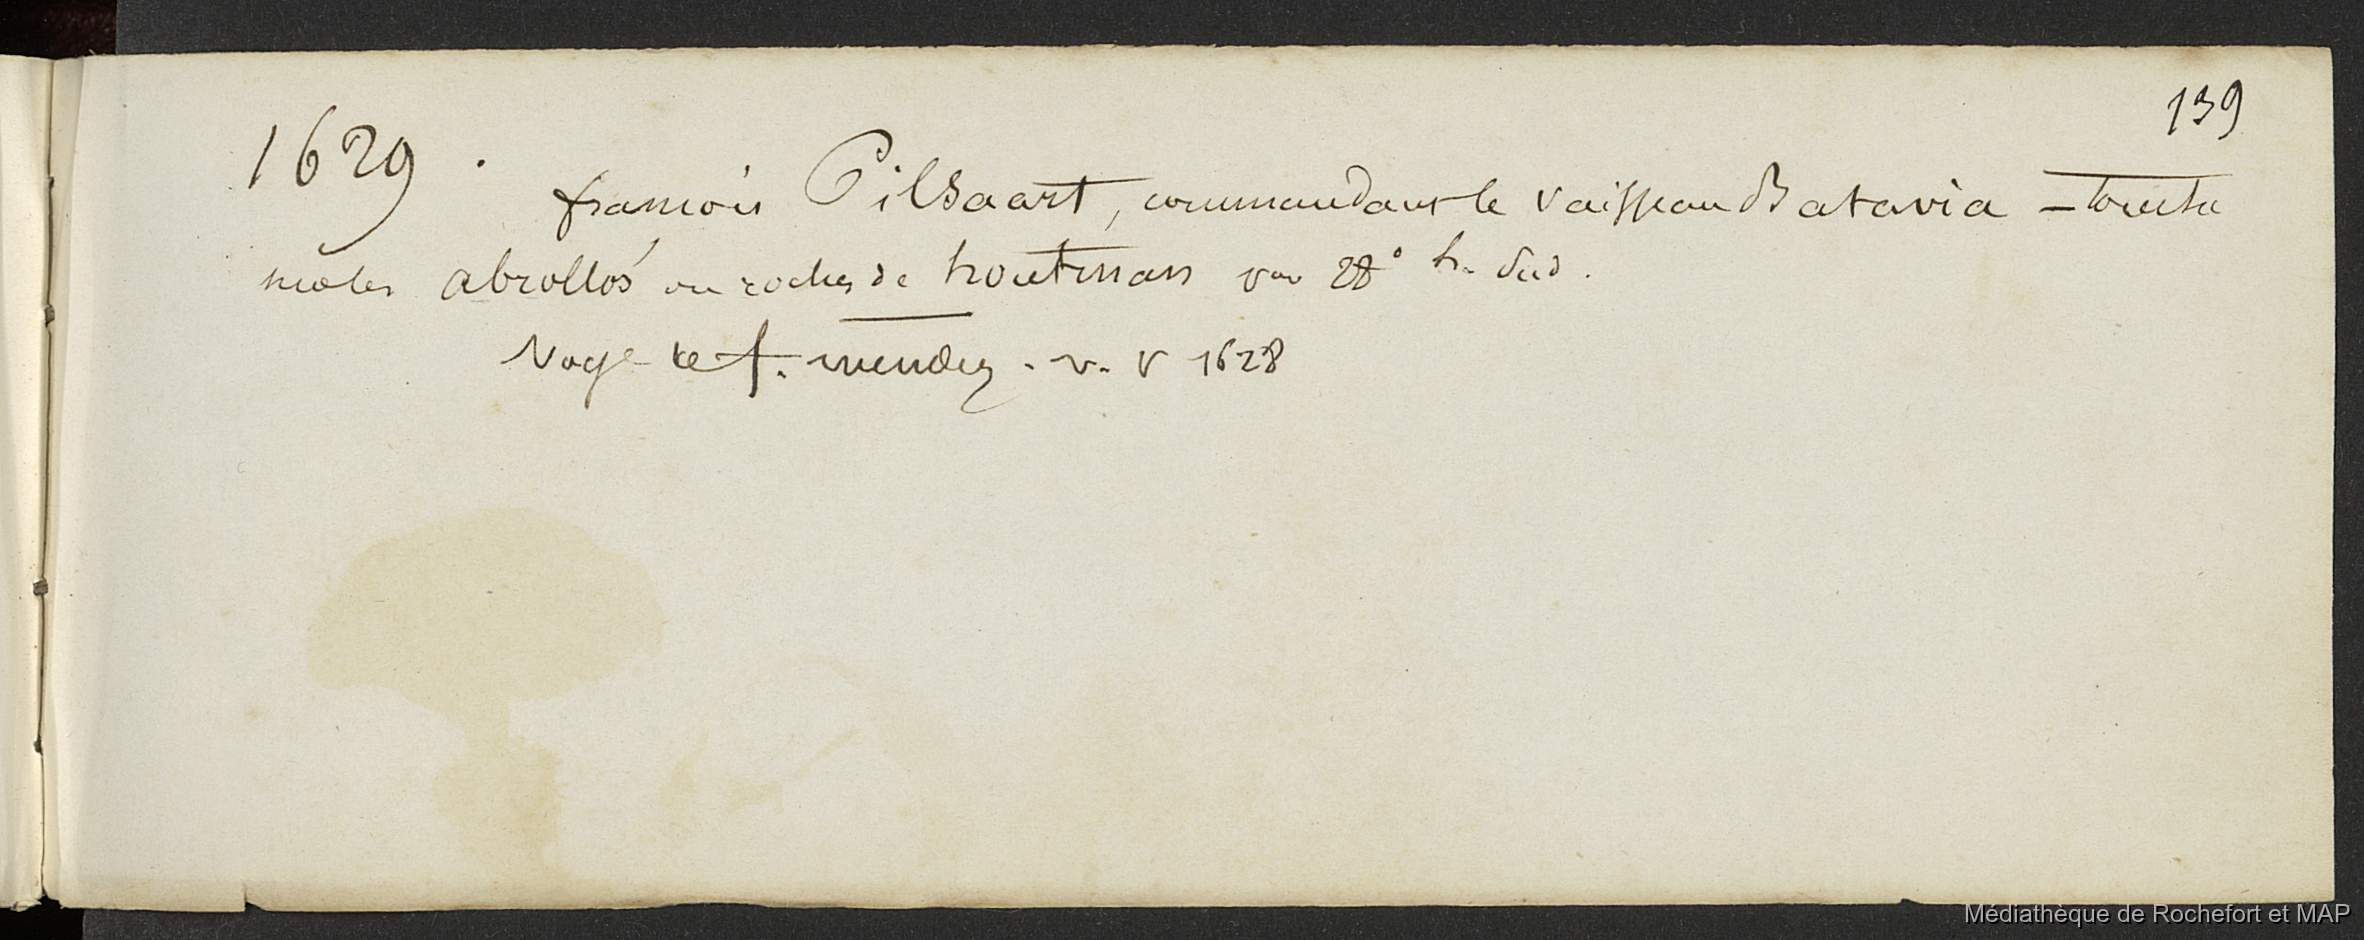 139
1629.
françois Pilsaart, commandant le vaisseau Batavia - touche
sur les abrollos ou roches de houtman par 28° l. sud.
Voyage de f. mendez. v. V 1628
Médiathèque de Rochefort et MAP